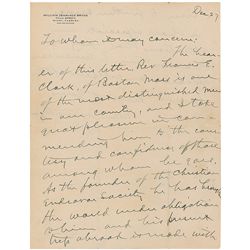 WILLIAM JENNINGS BRYAN
VILLA SERENA
MIAMI, FLORIDA
Dec 27
To whom it may concern:
The bear-
er of this letter, Rev. Francis E.
Clark, of Boston Mass is one
of the most distinguished men
in our country, and I take
great pleasure in com-
mending him to the cour
tesy and confidence of those
among whom he goes.
As the founder of the Christian
Endeavor Society he has
the world under obligation
to him and his present
trip abroad is made with